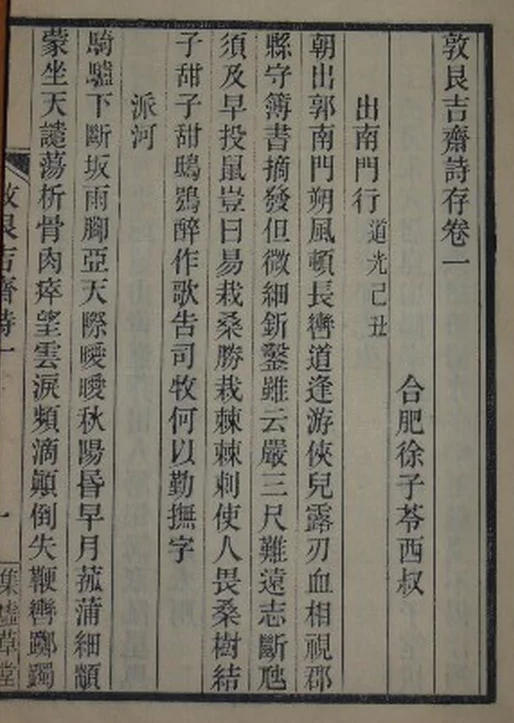 敦艮吉齋詩存卷一
合肥徐子苓西叔
出南門行道光己丑
朝出郭南門朔風頓長轡道逢游俠兒露刃血相視郡
縣守簿書摘發但微細釿鑿雖云嚴三尺難遠志斷虺
須及早投鼠豈曰易栽桑勝栽棘棘刺使人畏桑樹結
子甜子甜鴟鴞醉作歌告司牧何以勤撫字
派河
騎驢下斷坂雨腳亞天際曖曖秋陽昏早月菰蒲細顙
蒙坐天譴蕩析骨肉瘁望雲淚頻滴顚倒失鞭轡躑躅
敦艮吉齋詩一
一
集虛草堂